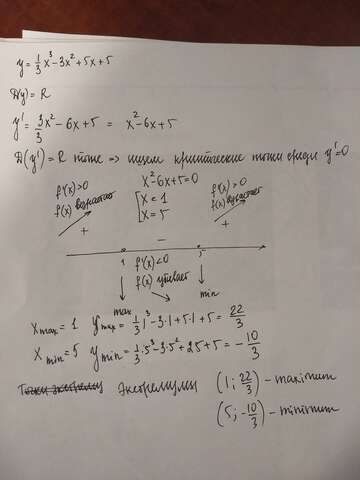 y = 1/3 x³ - 3x² + 5x + 5
D(y) = R
y' = 3/3 x² - 6x + 5 = x² - 6x + 5
D(y') = R тоже => ищем критические точки среди y' = 0
f'(x) > 0
f(x) возрастает
+
x² - 6x + 5 = 0
[ x = 1
x = 5
f'(x) > 0
f(x) возрастает
+
−
1 5
f'(x) < 0
f(x) убывает
max
min
x max = 1 y max = 1/3 · 1³ - 3·1 + 5·1 + 5 = 22/3
x min = 5 y min = 1/3 · 5³ - 3·5² + 25 + 5 = - 10/3
Точки экстрему Экстремумы (1; 22/3) - maximum
(5; -10/3) - minimum